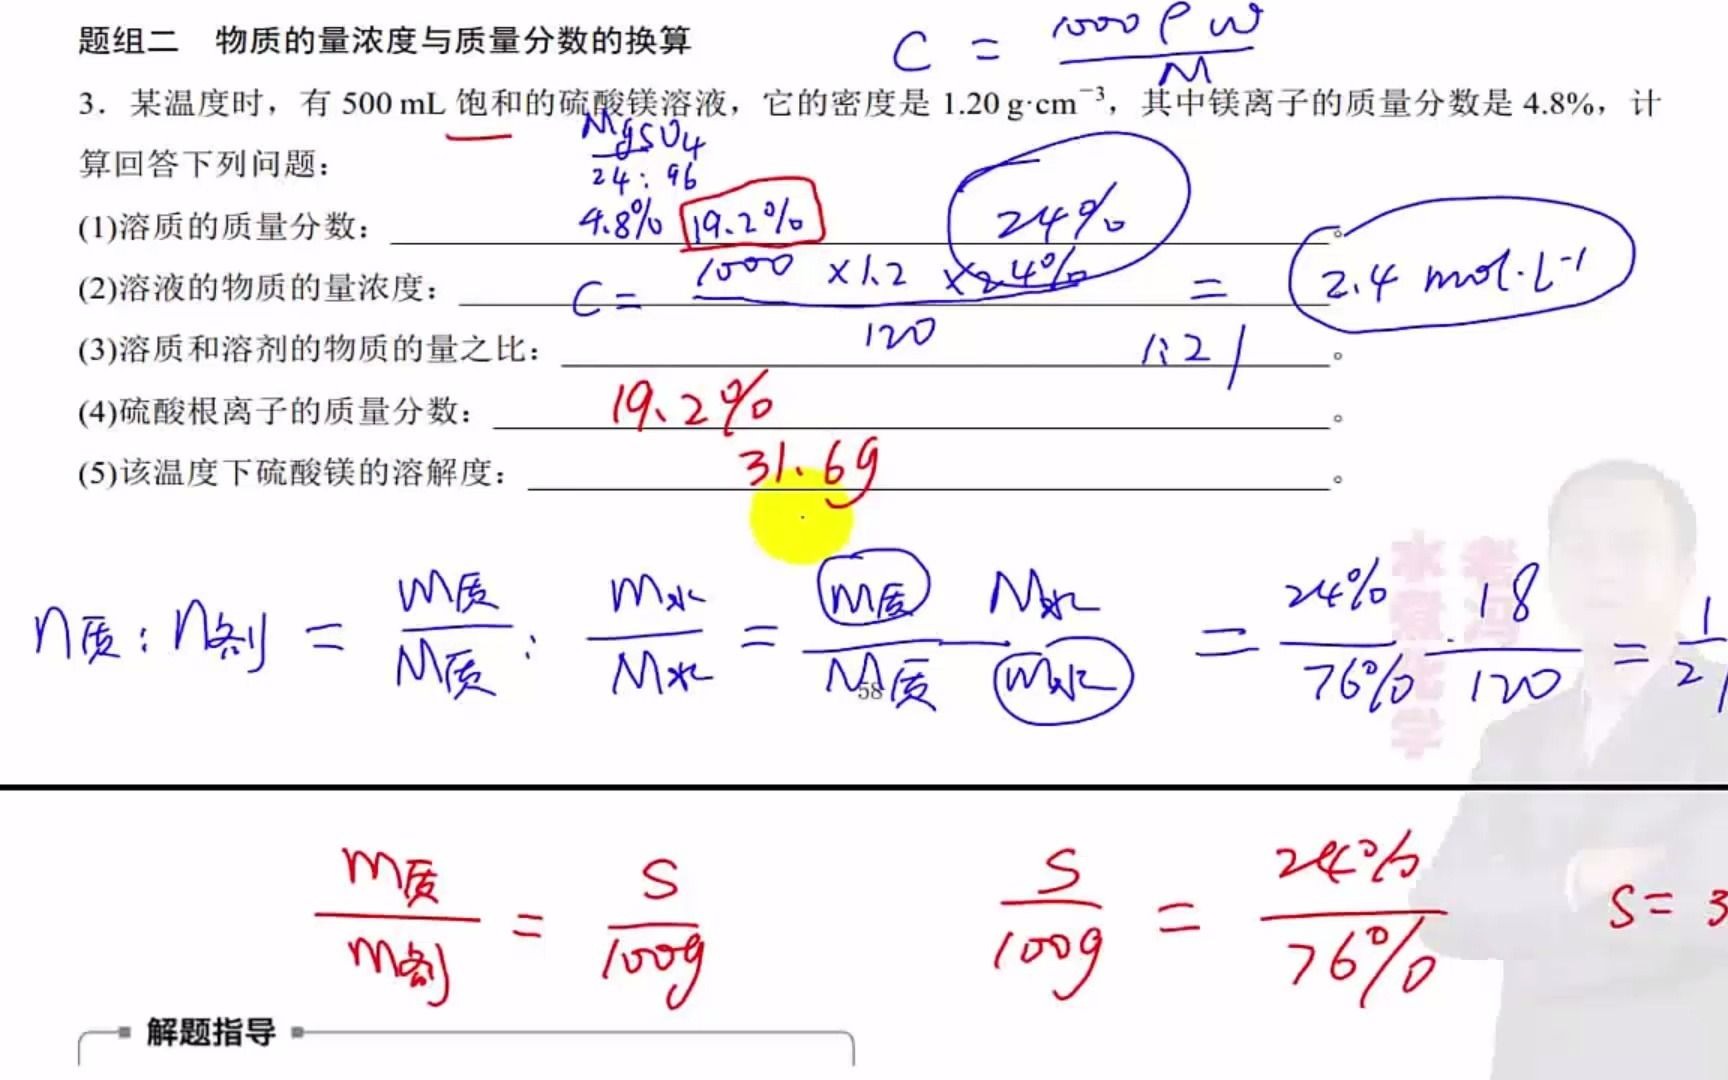 题组二 物质的量浓度与质量分数的换算
C = 1000 ρ w / M
3. 某温度时，有 500 mL 饱和的硫酸镁溶液，它的密度是 1.20 g·cm⁻³，其中镁离子的质量分数是 4.8%，计
算回答下列问题：
MgSO₄
24 : 96
4.8% 19.2%
(1)溶质的质量分数：24%。
(2)溶液的物质的量浓度：C = 1000 × 1.2 × 24% / 120 = 2.4 mol·L⁻¹
(3)溶质和溶剂的物质的量之比：1:21。
(4)硫酸根离子的质量分数：19.2%。
(5)该温度下硫酸镁的溶解度：31.6g。
n质 : n剂 = m质 / M质 : m水 / M水 = m质 M水 / M质 m水 = 24% / 76% · 18 / 120 = 1 / 21
58
水煮化学
老冯
m质 / m剂 = S / 100g
S / 100g = 24% / 76%
S = 3
解题指导